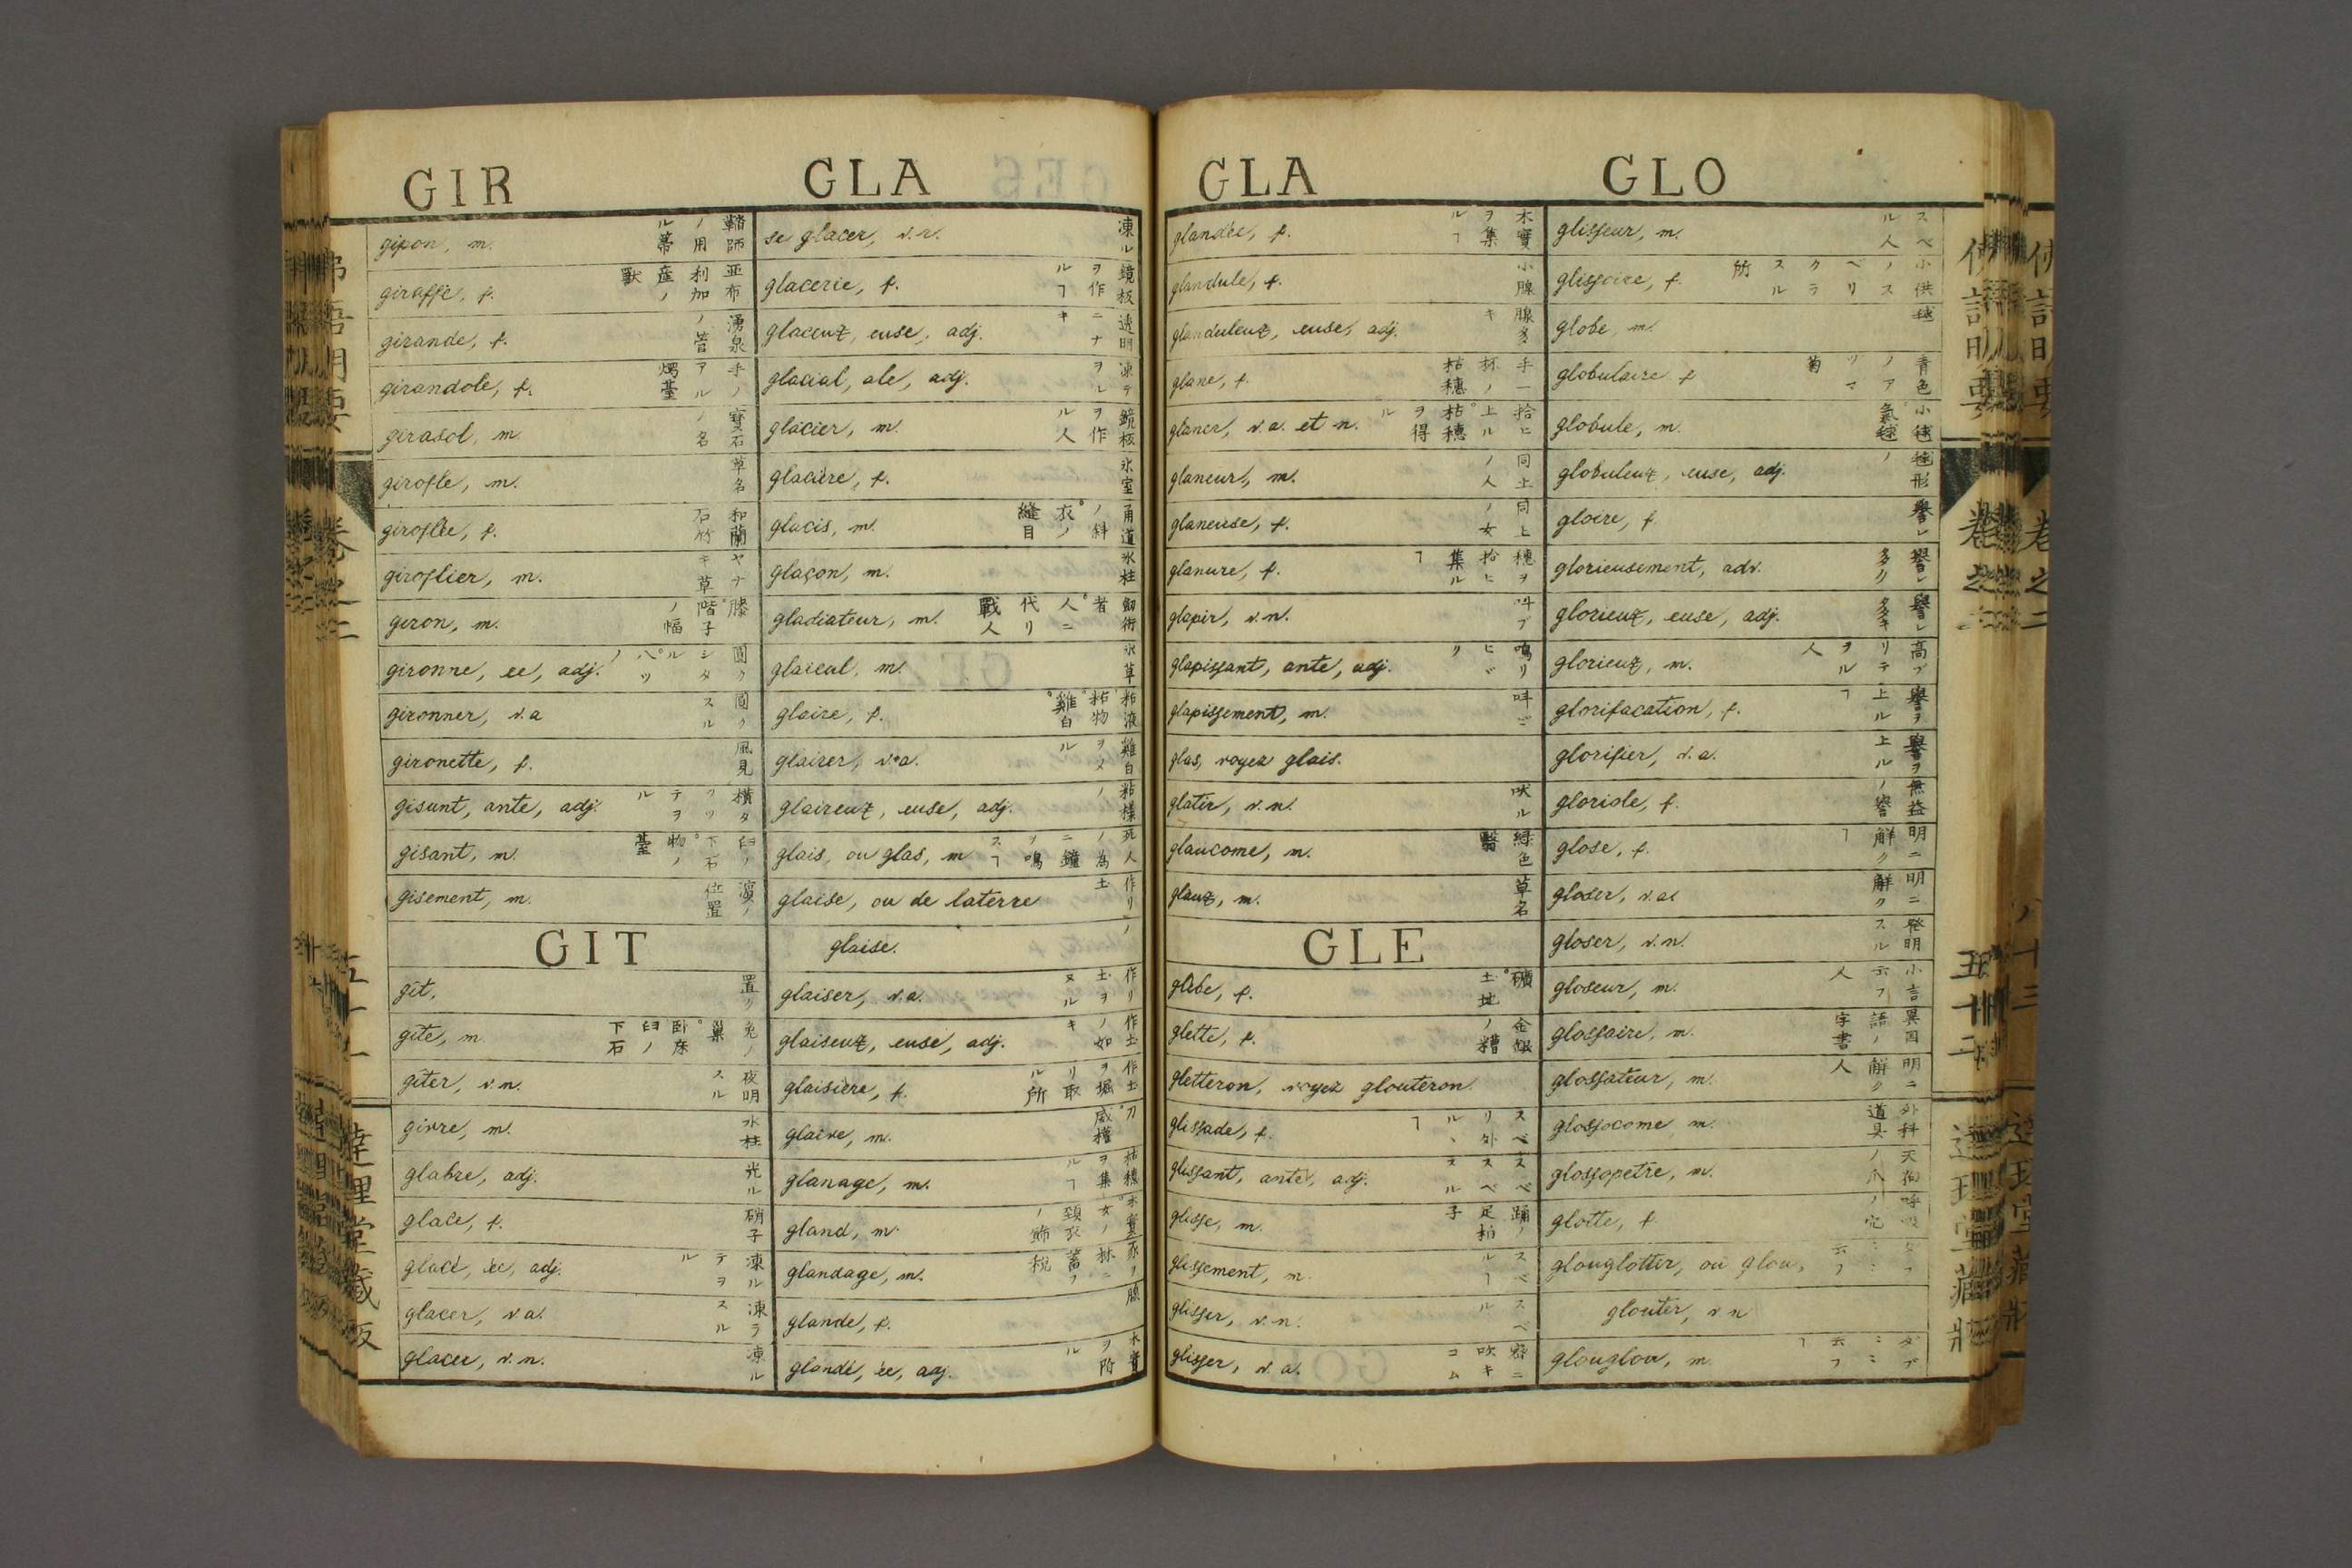 GIR
GLA
gipon, m. 鞜師ノ用ル篶
giraffe, f. 亜布利加産ノ獸
girande, f. 湧泉ノ管
girandole, f. 手ノアル燭臺
girasol, m. 寶石ノ名
girofle, m. 草名
giroflée, f. 和蘭石竹
giroflier, m. ヤナキ草
giron, m. 膝°階子ノ幅
gironne, ée, adj. 圓クシタル
gironner, v.a 圓クスル
gironette, f. 風見
gisant, ante, adj. 横タワツテヲル
gisant, m. 臼ノ下石°物ノ臺
gisement, m. 濵ノ位置
GIT
gît, 置ク
gîte, m. 兎ノ巢°臥床 臼ノ下石
gîter, v.n. 夜明スル
givre, m. 氷柱
glabre, adj. 光ル
glace, f. 硝子
glacé, ée, adj. 凍ルテヲル
glacer, v.a. 凍ラスル
glacer, v.n. 凍ル
se glacer, v.r. 凍ル
glacerie, f. 鏡板ヲ作ルヿ
glaceux, euse, adj. 透明ニナキ
glacial, ale, adj. 凍テヲレ
glacier, m. 鏡板ヲ作ル人
glacière, f. 氷室
glacis, m. 甬道ノ斜°衣ノ縫目
glaçon, m. 氷柱
gladiateur, m. 劒術者°人ニ代リ戰人
glaïeul, m. 氷草
glaire, f. 粘液°粘物°雞白°
glairer, v.a. 雞白ヲヌル
glaireux, euse, adj. 粘様ノ
glais, ou glas, m. 死人ノ為ニ鐘ヲ鳴スヿ
glaise, ou de laterre 作リノ土
glaise.
glaiser, v.a. 作リ土ヲヌル
glaiseux, euse, adj. 作土ノ如キ
glaisière, f. 作土ヲ掘リ取ル所
glaive, m. 刀°威權
glanage, m. 枯穗ヲ集ルヿ
gland, m. 木實°女ノ頚衣ノ飾
glandage, m.
glande, f. 腺
glandé, ée, adj.
GLA
GLO
glandée, f. 木實ヲ集ルヿ
glandule, f. 小腺
glanduleux, euse, adj. 腺多キ
glane, f. 手一抔ノ枯穗
glaner, v.a. et n. 拾ヒ上ル°枯穗ヲ得ル
glaneur, m. 同上ノ人
glaneuse, f. 同上ノ女
glanure, f. 穗ヲ拾ヒ集ルヿ
glapir, v.n. 叫ブ
glapissant, ante, adj. 鳴リヒヾク
glapissement, m. 呌ビ
glas, voyez glais.
glatir, v.n. 吠ル
glaucome, m. 緑色翳
glaux, m. 草名
GLE
glèbe, f. 礦°土 土地
glette, f. 金銀ノ糟
gletteron, voyez glouteron
glissade, f. スベリ外ルヽヿ
glissant, ante, adj. スベスベスル
glisse, m. 踊ノ足拍子
glissement, m. スベルヿ
glisser, v.n. スベル
glisser, v.a. 密ニ吹キコム
glisseur, m. スベル人
glissoire, f. 小供ノスベリクラスル所
globe, m. 毬
globulaire f 青色ノアリマ菊
globule, m. 小毬°氣毬
globuleux, euse, adj. 毬形ノ
gloire, f. 譽レ
glorieusement, adv. 譽レ多ク
glorieux, euse, adj. 譽レ多キ
glorieux, m. 高ブリテヲル人
glorifacation, f. 譽ヲ上ルヿ
glorifier, v.a. 譽ヲ上ル
gloriole, f. 無益ノ譽
glose, f. 明ニ解クヿ
gloser, v.a. 明ニ解ク
gloser, v.n. 発明スル
gloseur, m. 小言云フ人
glossaire, m. 異国語ノ字書
glossateur, m. 明ニ解ク人
glossocome, m. 外科道具
glossopetre, m. 天狗ノ爪
glotte, f. 呼吸ノ穴
glouglotter, ou glou,
glouter, v.n
glouglou, m.
巻之二
五十二
達理堂蔵版